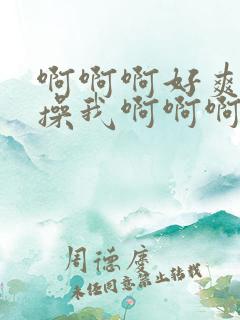 啊啊啊好爽
操我啊啊啊
周德庆
未经同意禁止转载